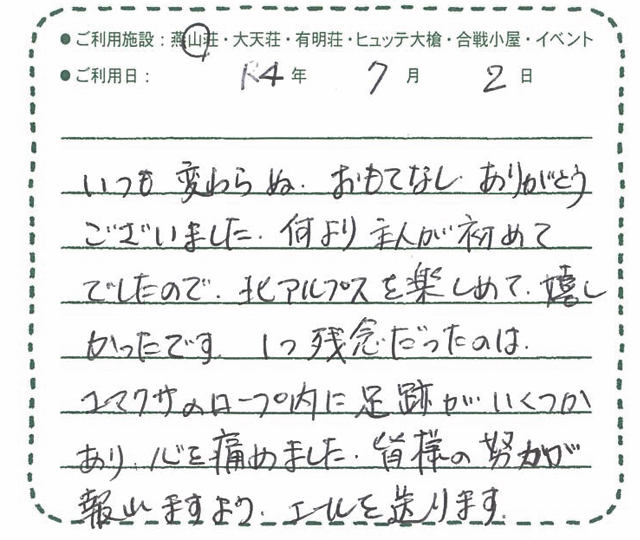 ●ご利用施設：燕山荘・大天荘・有明荘・ヒュッテ大槍・合戦小屋・イベント
●ご利用日： R4年 7月 2日
いつも変わらぬ、おもてなし ありがとう
ございました。何より主人が初めて
でしたので、北アルプスを楽しめて、嬉し
かったです。1つ残念だったのは、
コマクサのロープ内に足跡がいくつか
あり、心を痛めました。皆様の努力が
報われますよう、エールを送ります。